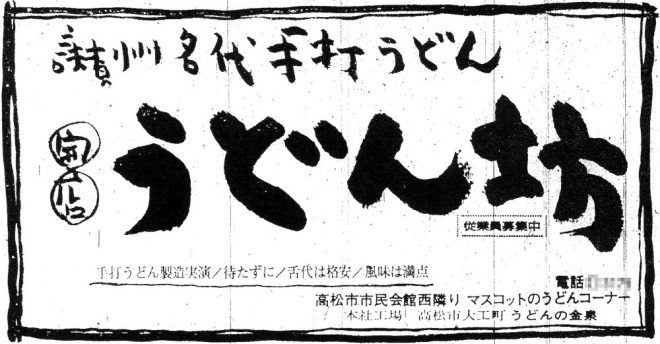 讃州名代手打うどん
開店
うどん坊
従業員募集中
手打うどん製造実演/待たずに/舌代は格安/風味は満点
電話
高松市市民会館西隣り マスコットのうどんコーナー
本社工場 高松市大工町 うどんの金泉